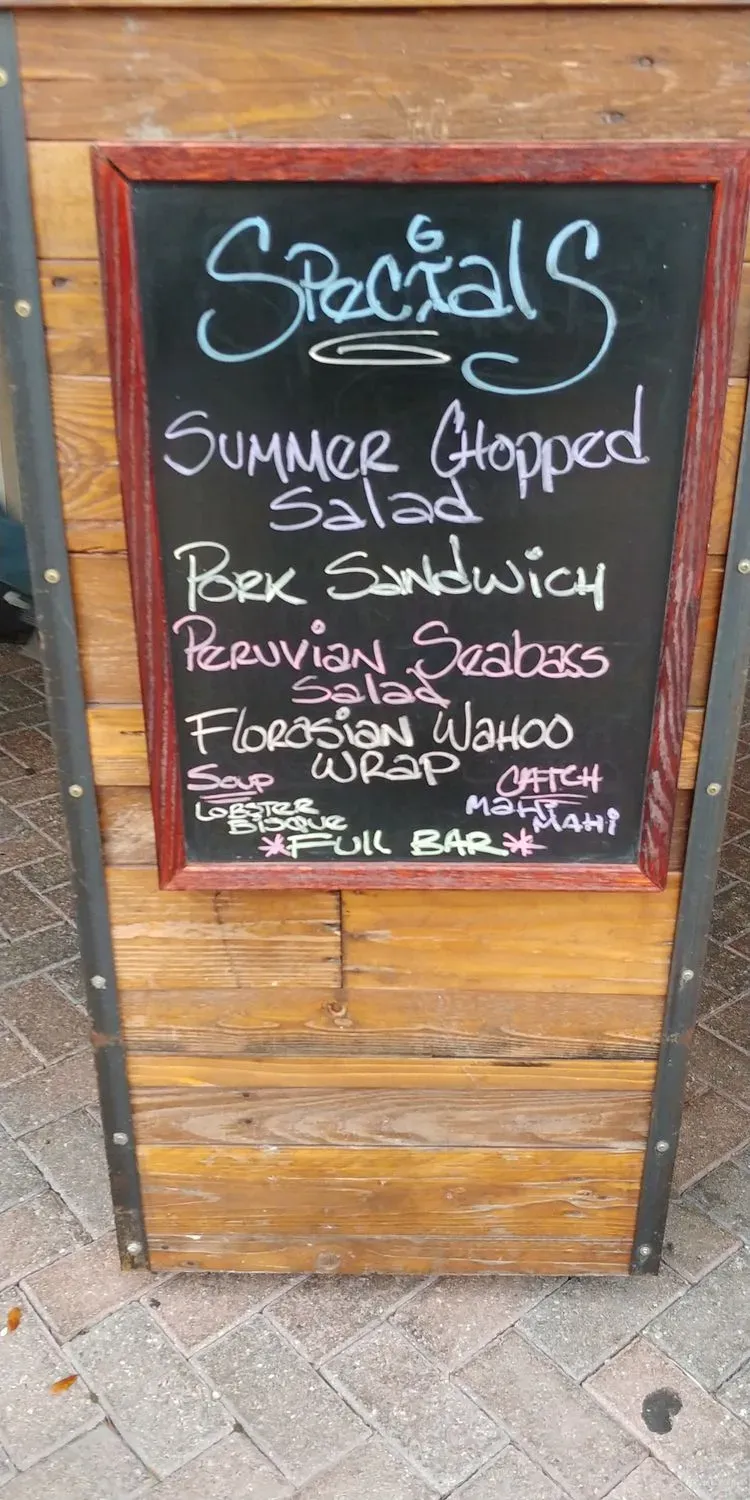 Specials
Summer Chopped
Salad
Pork Sandwich
Peruvian Seabass
Salad
Florasian Wahoo
Wrap
Soup
Lobster
Bisque
Catch
Mahi
Mahi
*Full Bar*